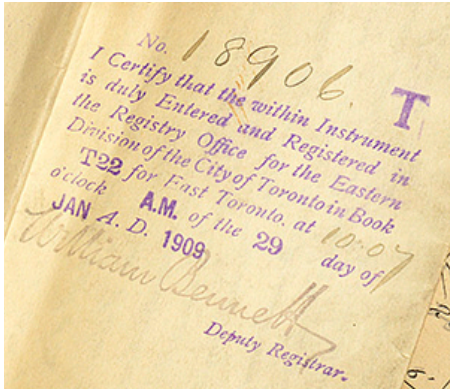 No. 18906. T
I Certify that the within Instrument
is duly Entered and Registered in
the Registry Office for the Eastern
Division of the City of Toronto in Book
T22 for East Toronto. at 10:07
o'clock A.M. of the 29 day of
JAN A. D. 1909
William Bennett
Deputy Registrar.